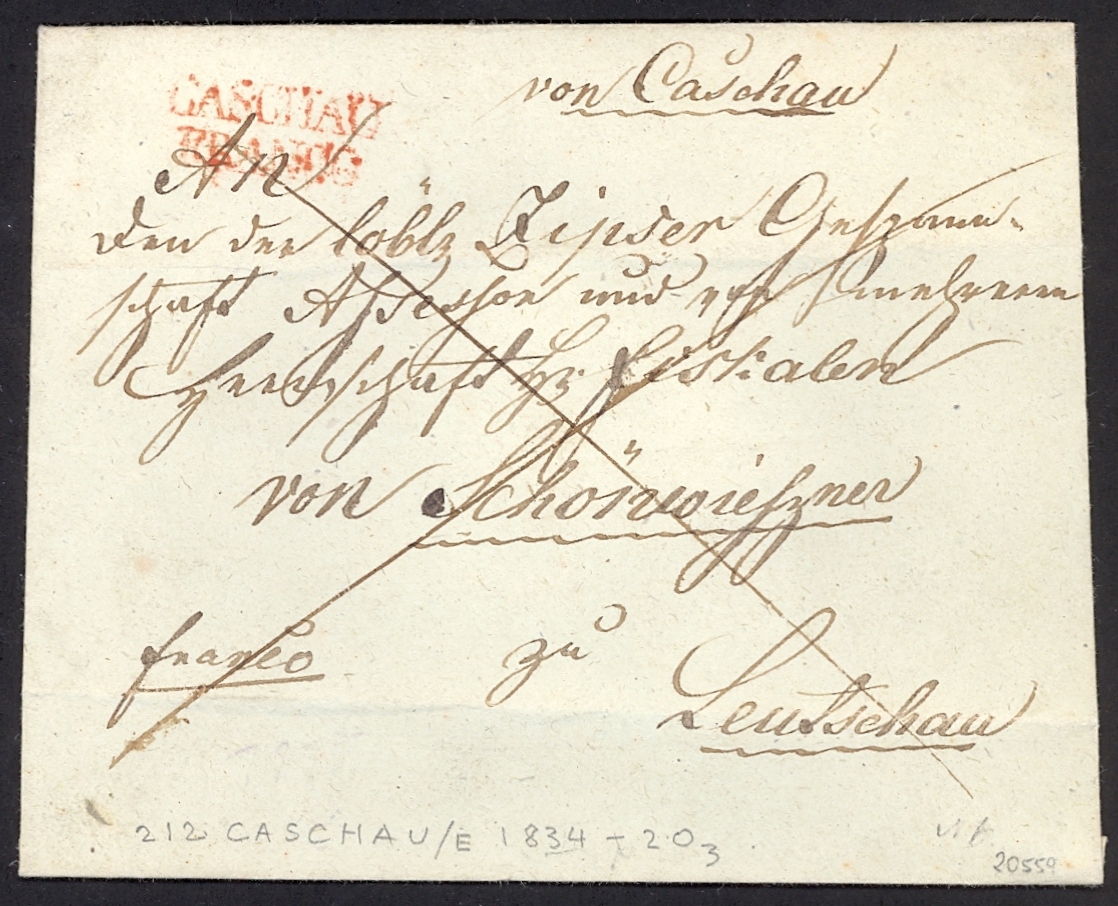 von Caschau
CASCHAU
FRANCO
An
den der löbl. Zipser Gespann-
schaft Assessor und mehreren
Herrschaft Hr. Fiskalen
von Schönwieszner
franco zu
Leutschau
212 CASCHAU/E 1834 - 20
20559